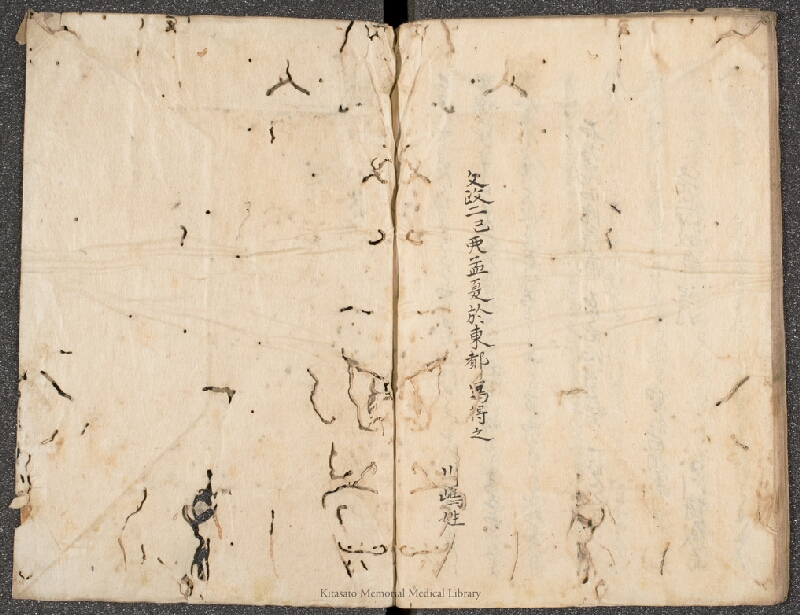 文政二己卯孟夏於東都寫得之
川嶋姓
Kitasato Memorial Medical Library